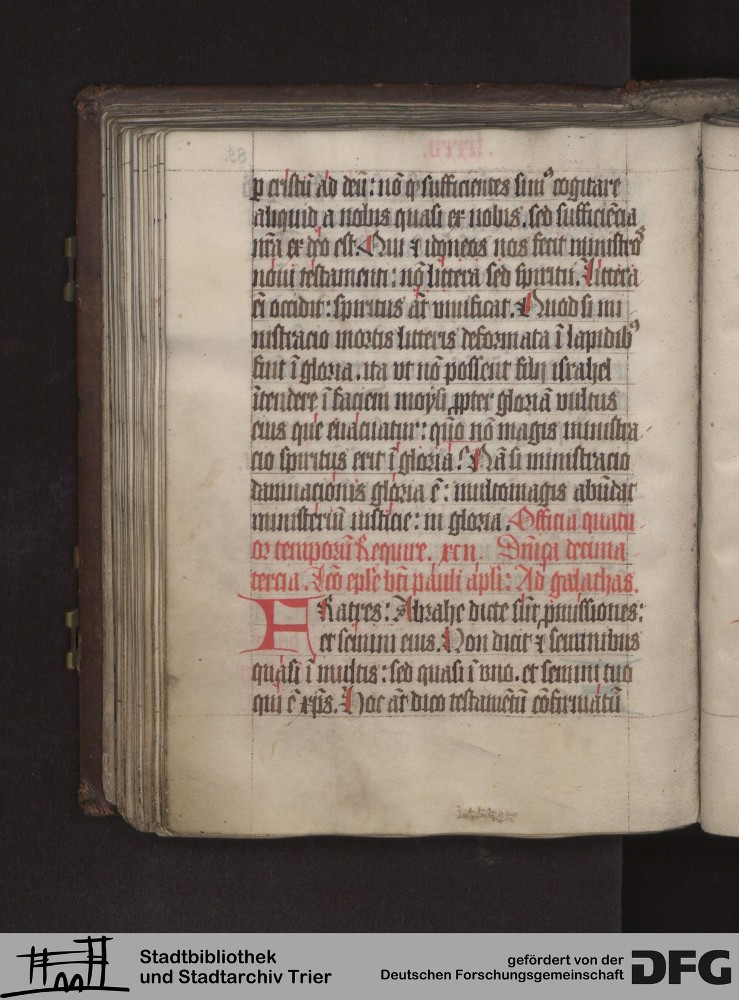 p cristū ad deū: nō q̄ sufficientes sim⁹ cogitare
aliquid a nobis quasi ex nobis. sed sufficiēcia
nr̄a ex deo est. Qui ⁊ idoneos nos fecit ministro⁹
noui testamenti: nō littera sed spiritū. Littera
eī occidit: spiritus āt viuificat. Quod si mi
nistracio mortis litteris deformata ī lapidib⁹
fuit ī gloria. ita vt nō possent filij israhel
ītendere ī faciem moysi ꝓpter gloriā vultus
eius que euacuatur: quō nō magis ministra
cio spiritus erit ī gloria? Nā si ministracio
damnacionis gloria ē: multomagis abūdat
ministeriū iusticie: in gloria. Officia quatu
or temporū Require. xcii. Dn̄ica decima
tercia. Lc̄o epl̄e bt̄i pauli apl̄i: Ad galathas.
FRatres: Abrahe dicte sūt ꝓmissiones:
et semini eius. Non dicit ⁊ seminibus
quasi ī multis: sed quasi ī vno. et semini tuo
qui ē xp̄s. Hoc āt dico testamētū cōfirmatū
Stadtbibliothek
und Stadtarchiv Trier
gefördert von der
Deutschen Forschungsgemeinschaft
DFG